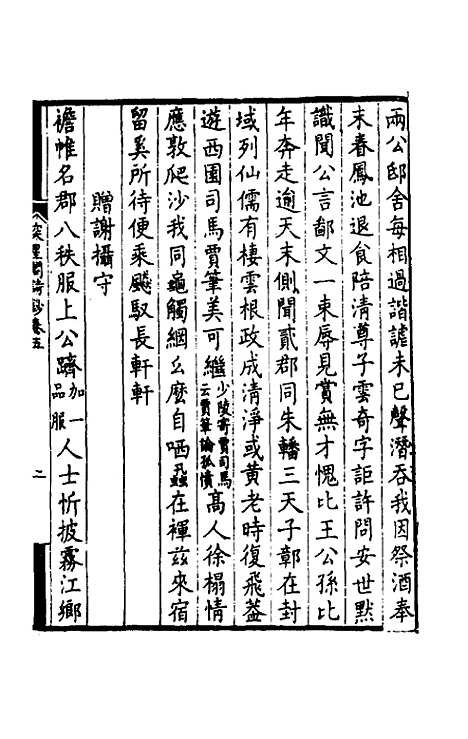 兩公邸舍每相過諧謔未已聲潛吞我因祭酒奉
末春鳳池退食陪清尊子雲奇字詎許問安世默
識聞公言鄙文一束辱見賞無才愧比王公孫比
年奔走逾天末側聞貳郡同朱轓三天子鄣在封
域列仙儒有棲雲根政成清淨或黃老時復飛蓋
遊西園司馬賈筆美可繼少陵寄賈司馬云賈筆論孤憤高人徐榻情
應敦爬沙我同龜觸綱幺麼自哂蝨在褌茲來宿
留奚所待便乘飈馭長軒軒
贈謝攝守
襜帷名郡八秩服上公躋加一品服人士忻披霧江鄉
閣詩鈔卷五
二